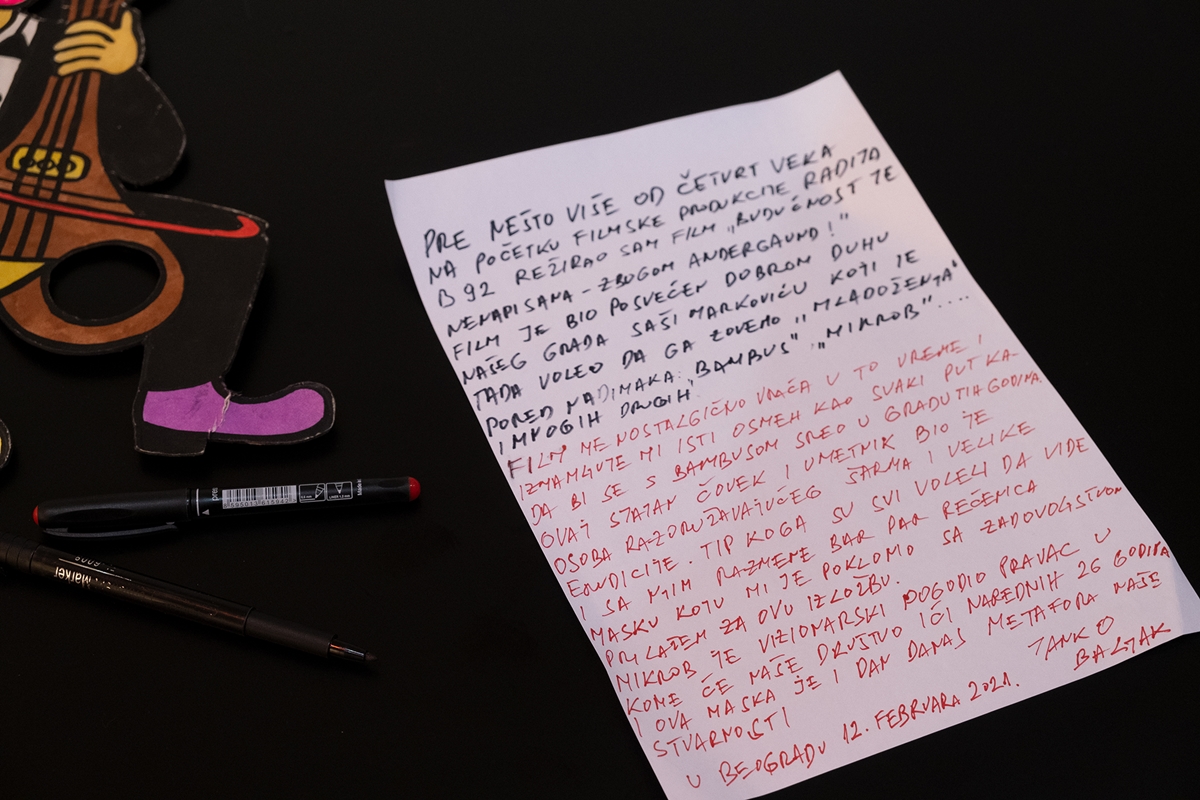 PRE NEŠTO VIŠE OD ČETVRT VEKA
NA POČETKU FILMSKE PRODUKCIJE RADIJA
B92 REŽIRAO SAM FILM „BUDUĆNOST JE
NENAPISANA - ZBOGOM ANDERGAUND!"
FILM JE BIO POSVEĆEN DOBROM DUHU
NAŠEG GRADA SAŠI MARKOVIĆU KOJI JE
TADA VOLEO DA GA ZOVEMO „MLADOŽENJA"
PORED NADIMAKA: „BAMBUS", „MIKROB"....
I MNOGIH DRUGIH
FILM ME NOSTALGIČNO VRAĆA U TO VREME I
IZMAMLJUJE MI ISTI OSMEH KAO SVAKI PUT KA-
DA BI SE S BAMBUSOM SREO U GRADU TIH GODINA.
OVAJ SJAJAN ČOVEK I UMETNIK BIO JE
OSOBA RAZORUŽAVAJUĆEG ŠARMA I VELIKE
ERUDICIJE. TIP KOGA SU SVI VOLELI DA VIDE
I SA NJIM RAZMENE BAR PAR REČENICA
MASKU KOJU MI JE POKLONIO SA ZADOVOLJSTVOM
PRILAŽEM ZA OVU IZLOŽBU.
MIKROB JE VIZIONARSKI POGODIO PRAVAC U
KOME ĆE NAŠE DRUŠTVO IĆI NAREDNIH 26 GODINA
I OVA MASKA JE I DAN DANAS METAFORA NAŠE
STVARNOSTI
JANKO
BALJAK
U BEOGRADU 12. FEBRUARA 2021.
Marker